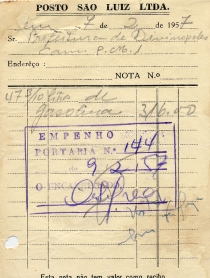 POSTO SÃO LUIZ LTDA.
em 7 de 2 de 1957
Sr. Prefeitura de Divinopolis
Cam. P.M.
Endereço:
NOTA N.º
47 3/10 de
gasolina 316,00
EMPENHO
PORTARIA N.º 144
9/2/57
O ENCARREGADO
Esta nota não tem valor como recibo